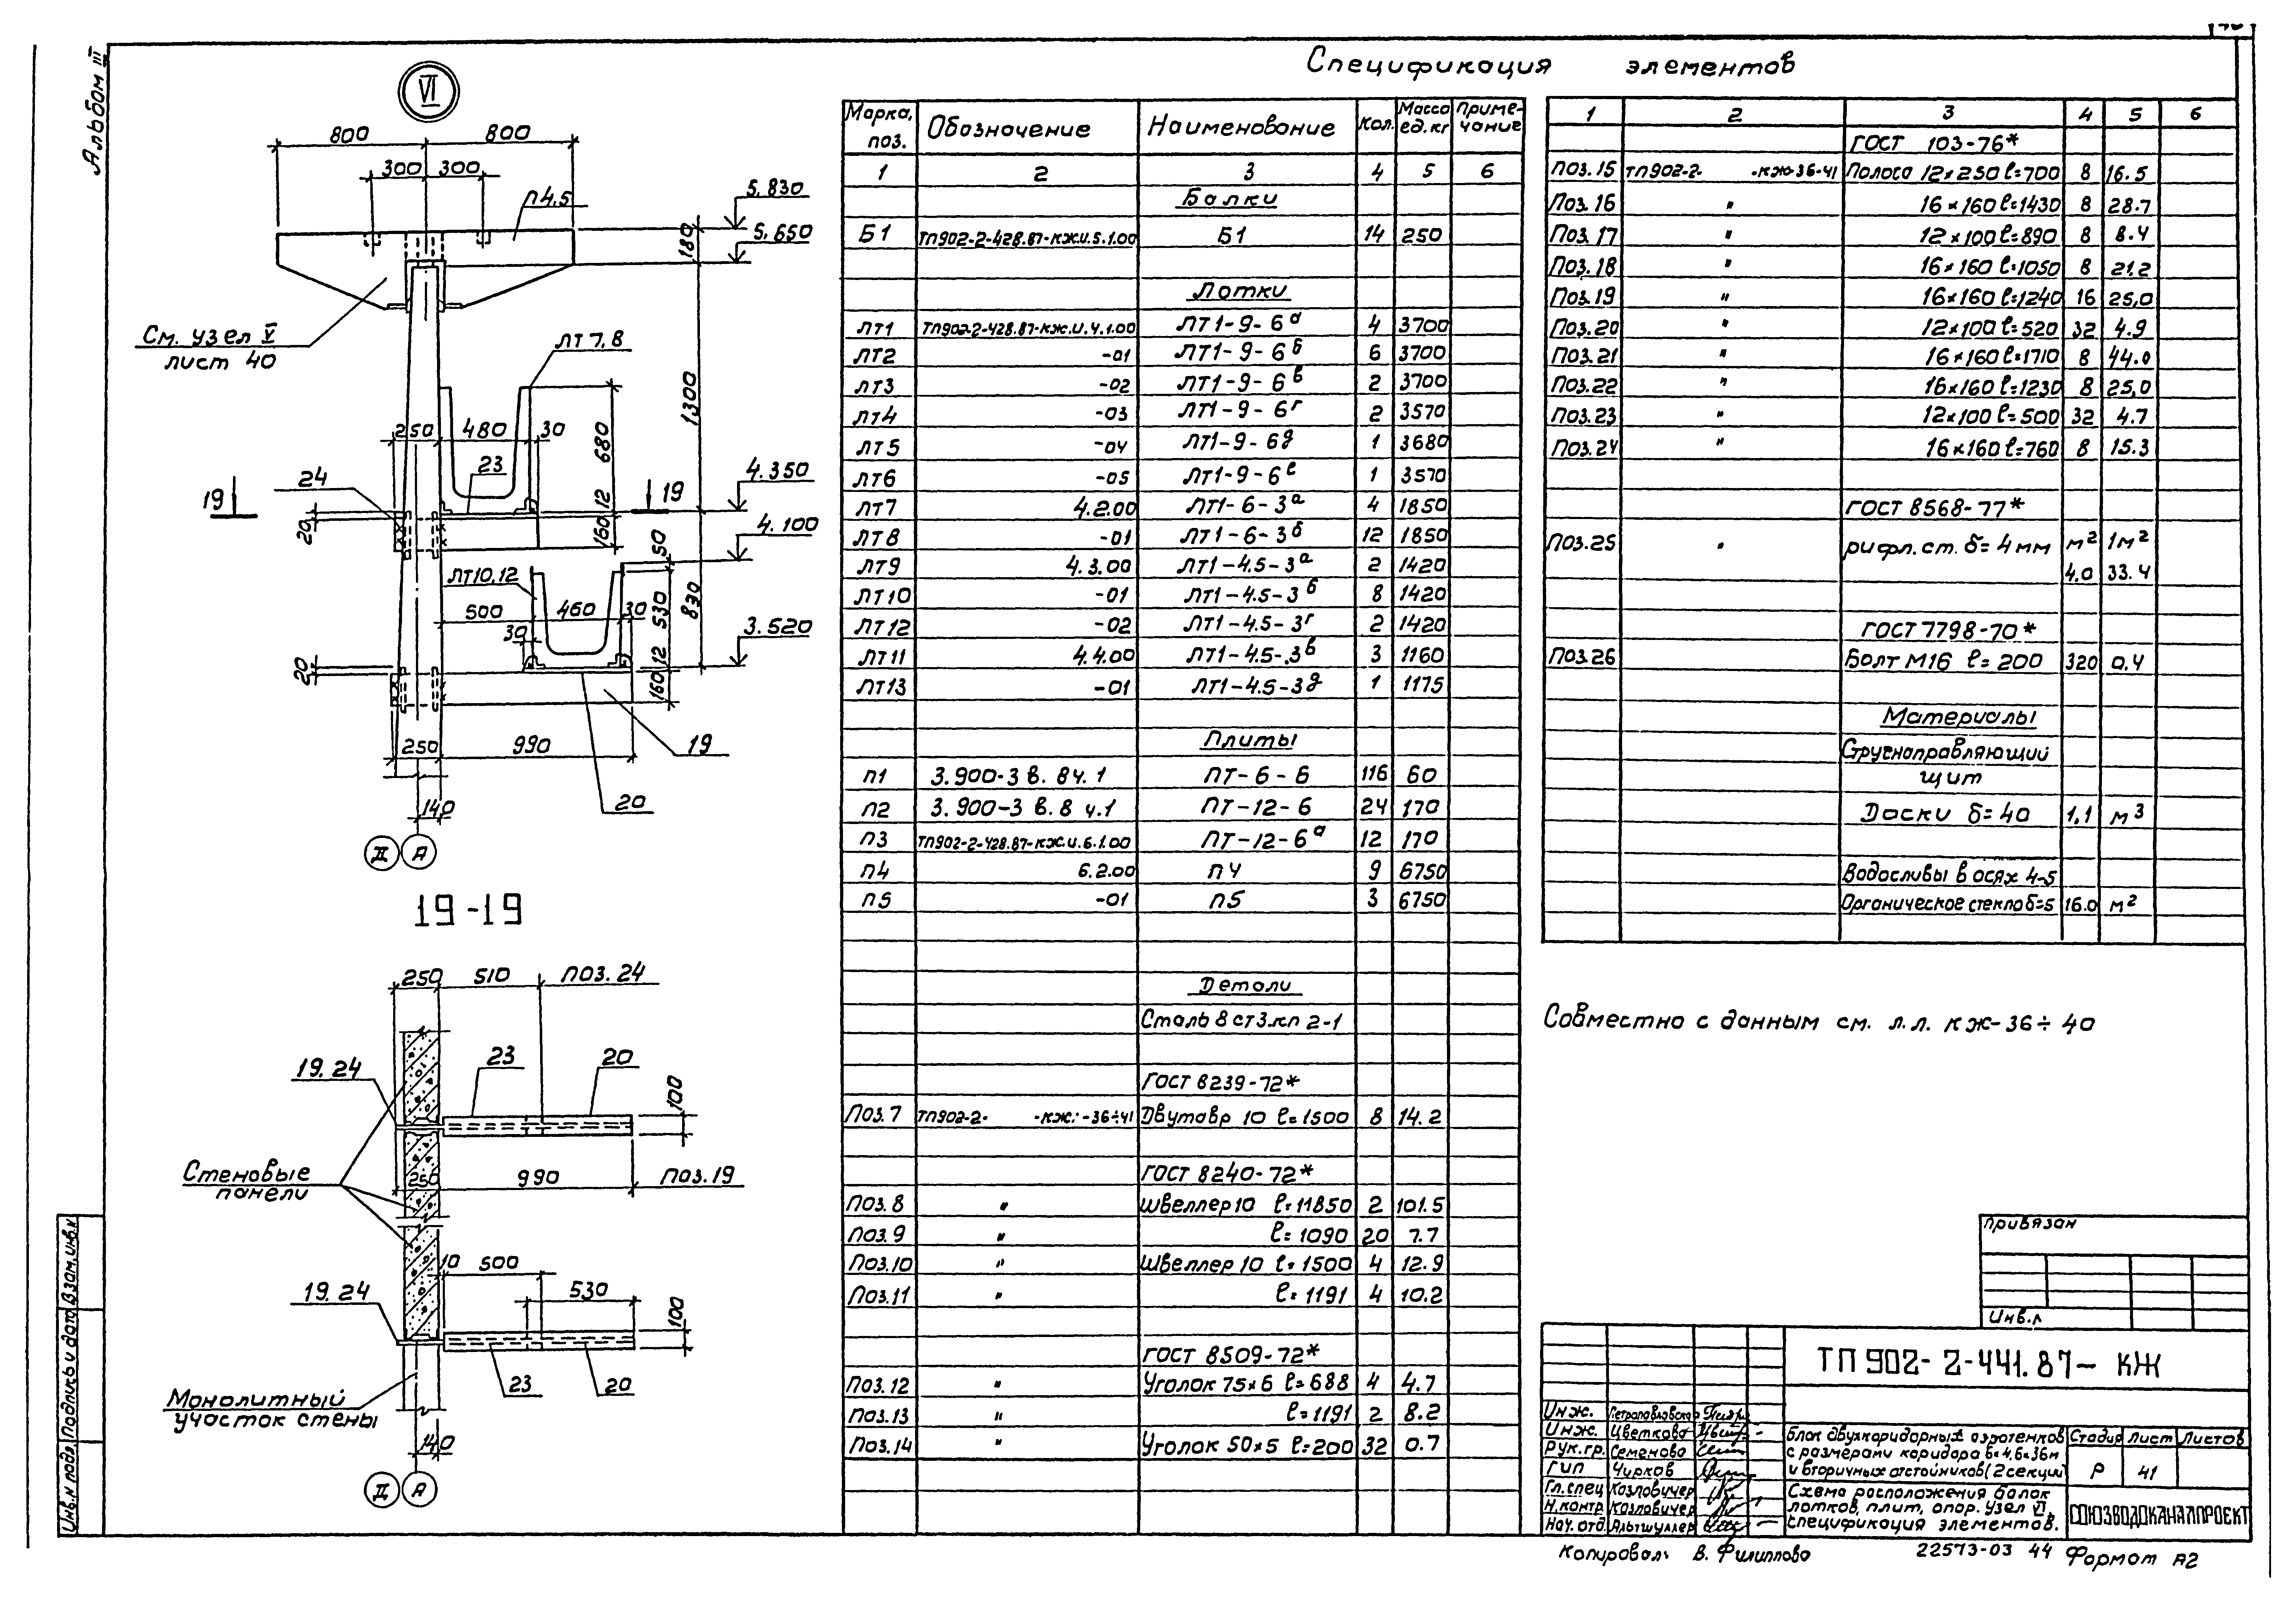 Альбом III
VI
800 800
300 300
п4,5
5.830
5.650
180
См. узел V
лист 40
ЛТ 7,8
1300
680
250 480 30
23
24
19 19
4.350
20
12
160
4.100
50
ЛТ10,12
500 460 30
530
830
30
3.520
20
12
160
250 990
19
20
140
Д А
19-19
250 510 поз. 24
19. 24
23 20
100
Стеновые
панели
250 990 поз. 19
10 500
19. 24
530
100
23 20
Монолитный
участок стены
140
Д А
Спецификация элементов
Марка, поз. Обозначение Наименование Кол. Масса ед.кг Примечание
1 2 3 4 5 6
Балки
Б1 ТП902-2-428.87-КЖ.И.5.1.00 Б1 14 250
Лотки
ЛТ1 ТП902-2-428.87-КЖ.И.4.1.00 ЛТ1-9-6а 4 3700
ЛТ2 -01 ЛТ1-9-6б 6 3700
ЛТ3 -02 ЛТ1-9-6в 2 3700
ЛТ4 -03 ЛТ1-9-6г 2 3570
ЛТ5 -04 ЛТ1-9-6д 1 3680
ЛТ6 -05 ЛТ1-9-6е 1 3570
ЛТ7 4.2.00 ЛТ1-6-3а 4 1850
ЛТ8 -01 ЛТ1-6-3б 12 1850
ЛТ9 4.3.00 ЛТ1-4.5-3а 2 1420
ЛТ10 -01 ЛТ1-4.5-3б 8 1420
ЛТ12 -02 ЛТ1-4.5-3г 2 1420
ЛТ11 4.4.00 ЛТ1-4.5-3в 3 1160
ЛТ13 -01 ЛТ1-4.5-3д 1 1175
Плиты
п1 3.900-3 в. 8ч. 1 ПТ-6-6 116 60
п2 3.900-3 в. 8 ч.1 ПТ-12-6 24 170
п3 ТП902-2-428.87-КЖ.И.6.1.00 ПТ-12-6а 12 170
п4 6.2.00 п4 9 6750
п5 -01 п5 3 6750
Детали
Сталь 8 ст3.кп 2-1
ГОСТ 8239-72*
Поз.7 ТП902-2- -КЖ:-36÷41 Двутавр 10 ℓ=1500 8 14.2
ГОСТ 8240-72*
Поз.8 " Швеллер10 ℓ=11850 2 101.5
Поз.9 " ℓ=1090 20 7.7
Поз.10 " Швеллер 10 ℓ=1500 4 12.9
Поз.11 " ℓ=1191 4 10.2
ГОСТ 8509-72*
Поз.12 " Уголок 75×6 ℓ=688 4 4.7
Поз.13 " ℓ=1191 2 8.2
Поз.14 " Уголок 50×5 ℓ=200 32 0.7
1 2 3 4 5 6
ГОСТ 103-76*
Поз.15 ТП902-2- -КЖ-36-41 Полоса 12×250 ℓ=700 8 16.5
Поз.16 " 16×160 ℓ=1430 8 28.7
Поз.17 " 12×100 ℓ=890 8 8.4
Поз.18 " 16×160 ℓ=1050 8 21.2
Поз.19 " 16×160 ℓ=1240 16 25,0
Поз.20 " 12×100 ℓ=520 32 4.9
Поз.21 " 16×160 ℓ=1710 8 44.0
Поз.22 " 16×160 ℓ=1230 8 25,0
Поз.23 " 12×100 ℓ=500 32 4.7
Поз.24 " 16×160 ℓ=760 8 15.3
ГОСТ 8568-77*
Поз.25 " рифл.ст. δ=4мм м² 1м²
4.0 33.4
ГОСТ 7798-70*
Поз.26 Болт М16 ℓ=200 320 0.4
Материалы
Струенаправляющий
щит
Доски δ=40 1.1 м³
Водосливы в осях 4-5
Органическое стекло δ=5 16.0 м²
Совместно с данным см. л.л. КЖ-36÷40
Привязан
Инв.л
ТП 902-2-441.87- КЖ
Инж. Петропавловская
Инж. Цветкова
Рук.гр. Семенова
ГИП Чирков
Гл.спец Козловичер
Н.контр Козловичер
Нач.отд. Альтшуллер
Блок двухкоридорных аэротенков
с размерами коридора 6×4,6×36м
и вторичных отстойников (2секции)
Стадия Лист Листов
Р 41
Схема расположения балок
лотков, плит, опор. Узел VI,
спецификация элементов.
СОЮЗВОДОКАНАЛПРОЕКТ
Копировал: В. Филиппова 22573-03 44 Формат А2
Инв.N подл. Подпись и дата Взам.инв.N